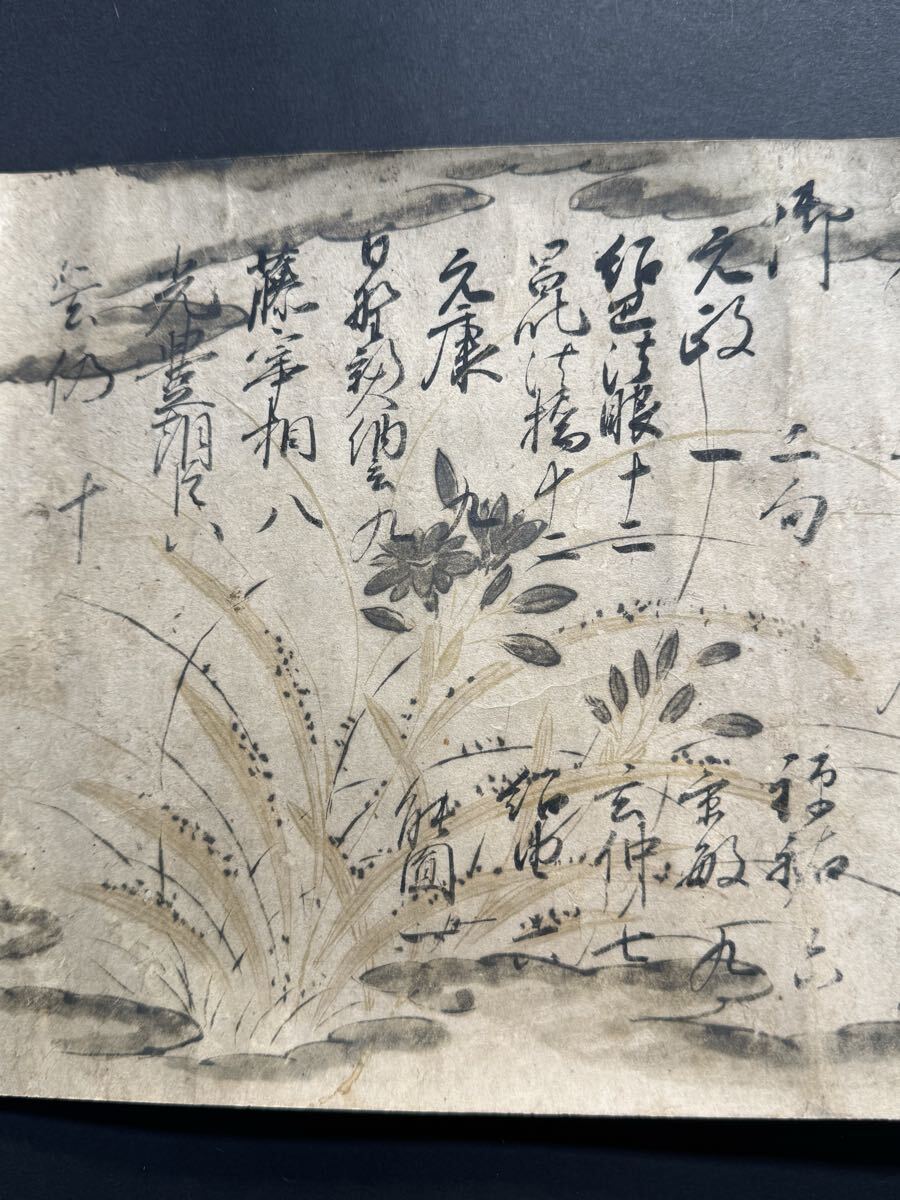 御 二句
元政 一
紹巴法眼 十二
昌叱法橋 十二
元康 九
日野新大納言 九
藤宰相 八
光豊朝臣 八
雲仍 十
禅祐 六
景敏 九
玄仲 七
紹由 六
能圓 一